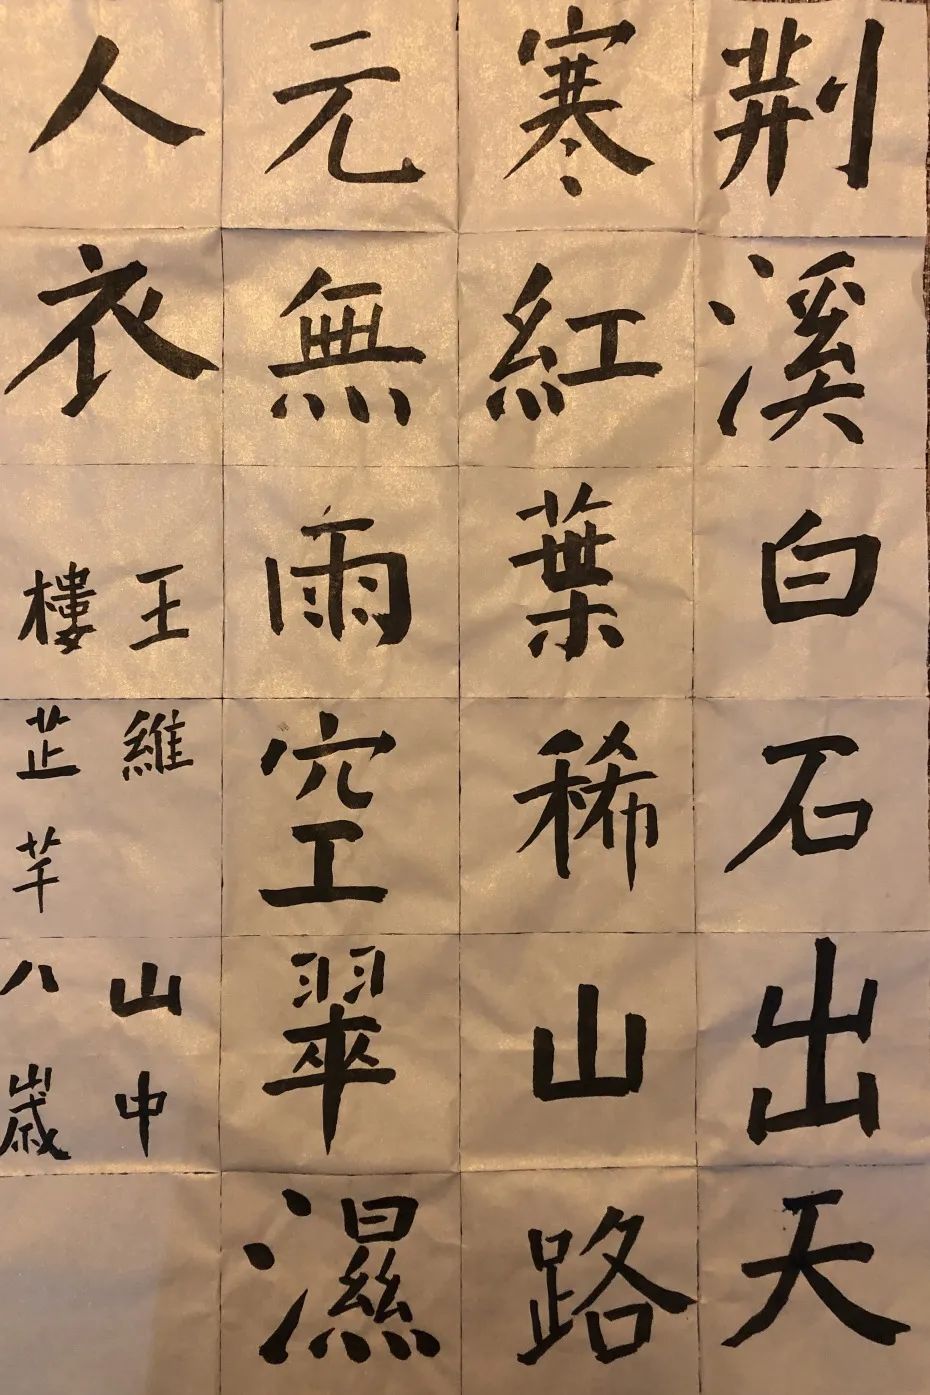 荆溪白石出天
寒紅葉稀山路
元無雨空翠濕
人衣
王維 山中
樓芷芊 八歲